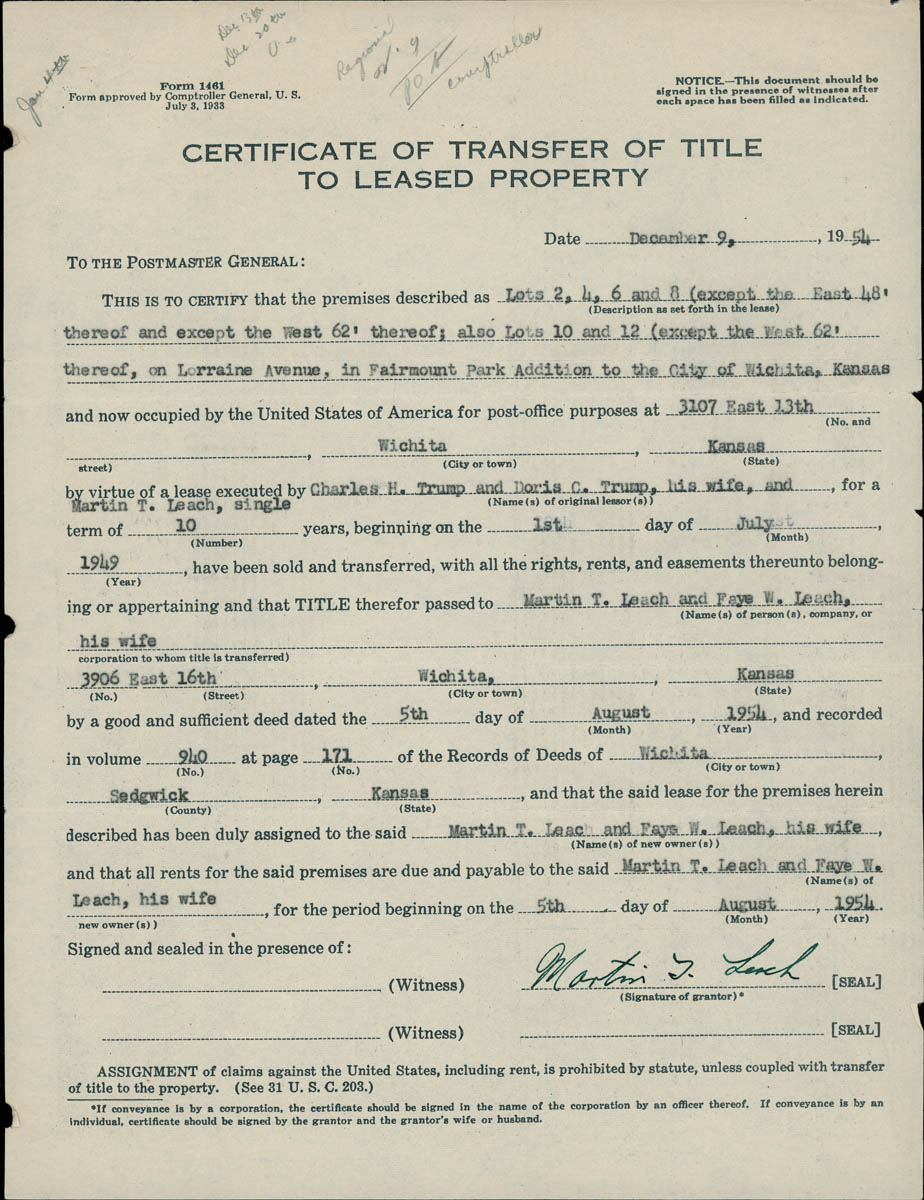 Jan 4th
Dec 13th
Dec 20th
Regional
comptroller
Form 1461
Form approved by Comptroller General, U. S.
July 3, 1933
NOTICE.—This document should be
signed in the presence of witnesses after
each space has been filled as indicated.
CERTIFICATE OF TRANSFER OF TITLE
TO LEASED PROPERTY
Date December 9, , 1954
TO THE POSTMASTER GENERAL:
THIS IS TO CERTIFY that the premises described as Lots 2, 4, 6 and 8 (except the East 48'
(Description as set forth in the lease)
thereof and except the West 62' thereof; also Lots 10 and 12 (except the West 62'
thereof, on Lorraine Avenue, in Fairmount Park Addition to the City of Wichita, Kansas
and now occupied by the United States of America for post-office purposes at 3107 East 13th
(No. and
Wichita , Kansas
street) (City or town) (State)
by virtue of a lease executed by Charles H. Trump and Doris C. Trump, his wife, and , for a
Martin T. Leach, single (Name(s) of original lessor(s))
term of 10 years, beginning on the 1st day of July ,
(Number) (Month)
1949 , have been sold and transferred, with all the rights, rents, and easements thereunto belong-
(Year)
ing or appertaining and that TITLE therefor passed to Martin T. Leach and Faye W. Leach,
(Name(s) of person(s), company, or
his wife
corporation to whom title is transferred)
3906 East 16th , Wichita, , Kansas
(No.) (Street) (City or town) (State)
by a good and sufficient deed dated the 5th day of August , 1954 , and recorded
(Month) (Year)
in volume 940 at page 171 of the Records of Deeds of Wichita ,
(No.) (No.) (City or town)
Sedgwick , Kansas , and that the said lease for the premises herein
(County) (State)
described has been duly assigned to the said Martin T. Leach and Faye W. Leach, his wife ,
(Name(s) of new owner(s))
and that all rents for the said premises are due and payable to the said Martin T. Leach and Faye W.
(Name(s) of
Leach, his wife , for the period beginning on the 5th day of August , 1954.
new owner(s)) (Month) (Year)
Signed and sealed in the presence of:
(Witness) Martin T. Leach [SEAL]
(Signature of grantor)*
(Witness) [SEAL]
ASSIGNMENT of claims against the United States, including rent, is prohibited by statute, unless coupled with transfer
of title to the property. (See 31 U. S. C. 203.)
*If conveyance is by a corporation, the certificate should be signed in the name of the corporation by an officer thereof. If conveyance is by an
individual, certificate should be signed by the grantor and the grantor's wife or husband.